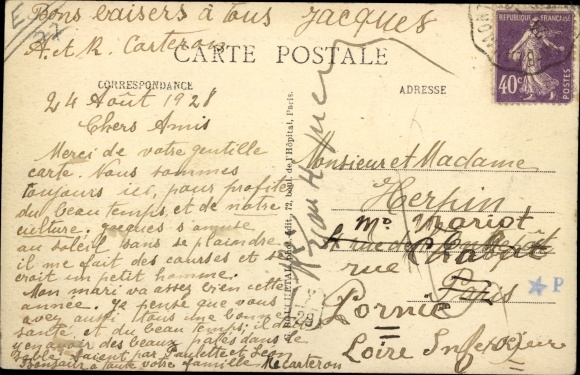 Bons baisers à tous Jacques
A. et R. Carteron
CARTE POSTALE
CORRESPONDANCE
ADRESSE
RÉPUBLIQUE FRANÇAISE
40c
POSTES
24 Août 1928
Chers Amis
Merci de votre gentille
carte. Nous sommes
toujours ici, pour profiter
du beau temps, et de notre
culture. Jacques s'amuse
au soleil sans se plaindre
il me fait des courses et se
croit un petit homme.
Mon mari va assez bien cette
année. Je pense que vous
avez aussi tous une bonne
santé, et du beau temps; il doit
y en avoir des beaux patés dans le
sable, faient par Paulette et Léon
Bonsoir à toute votre famille R Carteron
72, boul. de l'Hôpital, Paris.
Monsieur et Madame
Herpin
Mr Mariot
Chabot
rue
Paris
Pornic
Loire Inférieure
P